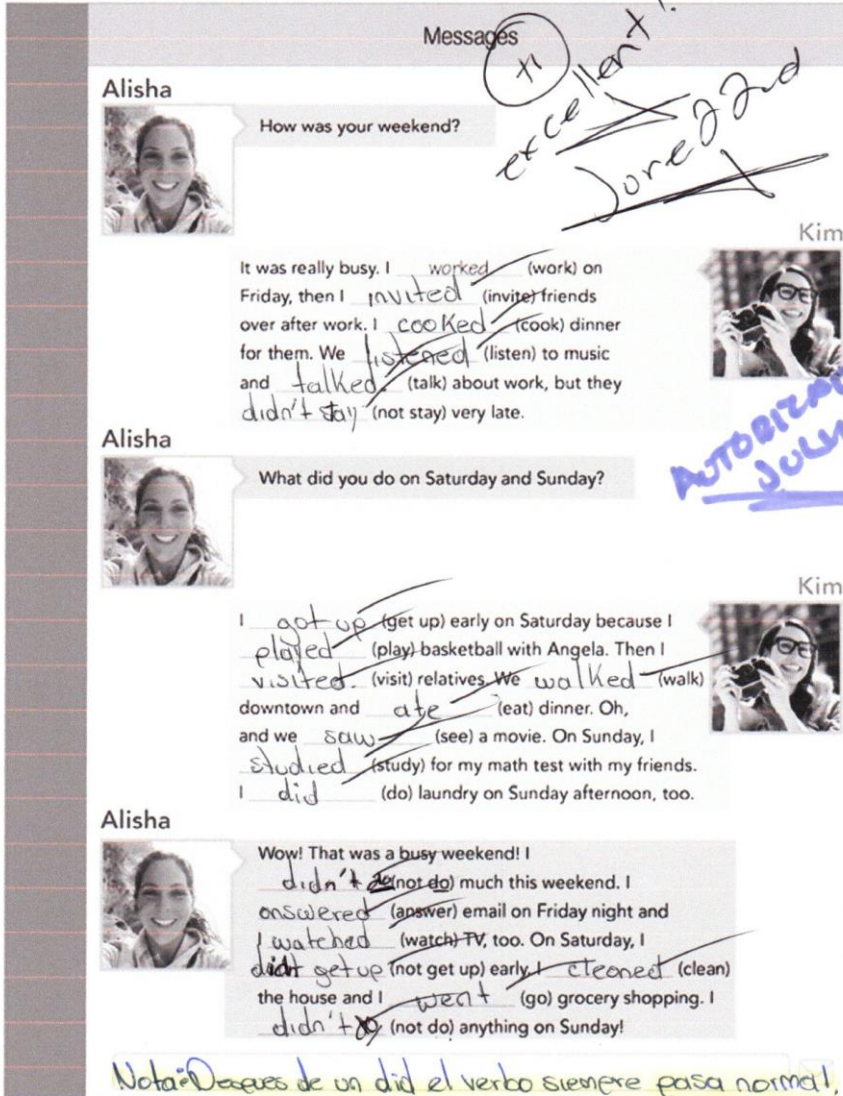 Messages
+1
excellent!
June 22nd
Alisha
How was your weekend?
Kim
It was really busy. I worked (work) on
Friday, then I invited (invite) friends
over after work. I cooked (cook) dinner
for them. We listened (listen) to music
and talked. (talk) about work, but they
didn't stay (not stay) very late.
Alisha
What did you do on Saturday and Sunday?
Kim
I got up (get up) early on Saturday because I
played (play) basketball with Angela. Then I
visited. (visit) relatives. We walked (walk)
downtown and ate (eat) dinner. Oh,
and we saw (see) a movie. On Sunday, I
studied (study) for my math test with my friends.
I did (do) laundry on Sunday afternoon, too.
Alisha
Wow! That was a busy weekend! I
didn't do (not do) much this weekend. I
answered (answer) email on Friday night and
I watched (watch) TV, too. On Saturday, I
didnt get up (not get up) early. I cleaned (clean)
the house and I went (go) grocery shopping. I
didn't do (not do) anything on Sunday!
Nota: Despues de un did el verbo siempre pasa normal.